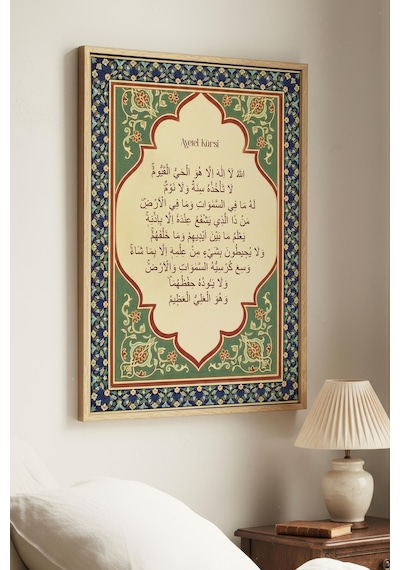 Ayetel Kürsi
اللهُ لَا إِلٰهَ إِلَّا هُوَ الْحَيُّ الْقَيُّومُ
لَا تَأْخُذُهُ سِنَةٌ وَلَا نَوْمٌ
لَهُ مَا فِي السَّمٰوَاتِ وَمَا فِي الْاَرْضِ
مَنْ ذَا الَّذِي يَشْفَعُ عِنْدَهُ إِلَّا بِإِذْنِهِ
يَعْلَمُ مَا بَيْنَ أَيْدِيهِمْ وَمَا خَلْفَهُمْ
وَلَا يُحِيطُونَ بِشَيْءٍ مِنْ عِلْمِهِ إِلَّا بِمَا شَاءَ
وَسِعَ كُرْسِيُّهُ السَّمٰوَاتِ وَالْاَرْضَ
وَلَا يَئُودُهُ حِفْظُهُمَا
وَهُوَ الْعَلِيُّ الْعَظِيمُ